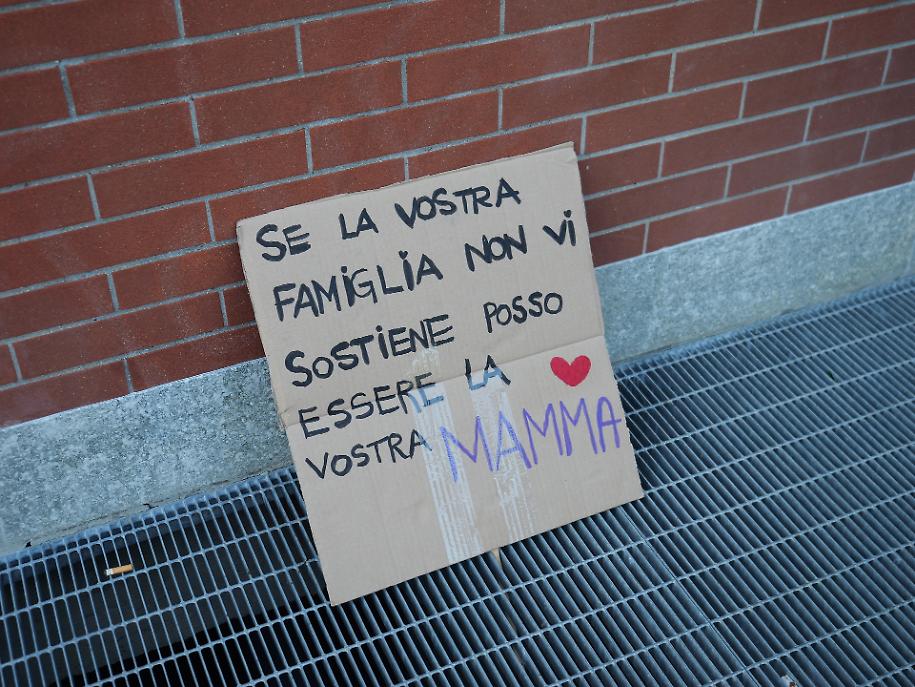 SE LA VOSTRA
FAMIGLIA NON VI
SOSTIENE POSSO
ESSERE LA
VOSTRA MAMMA